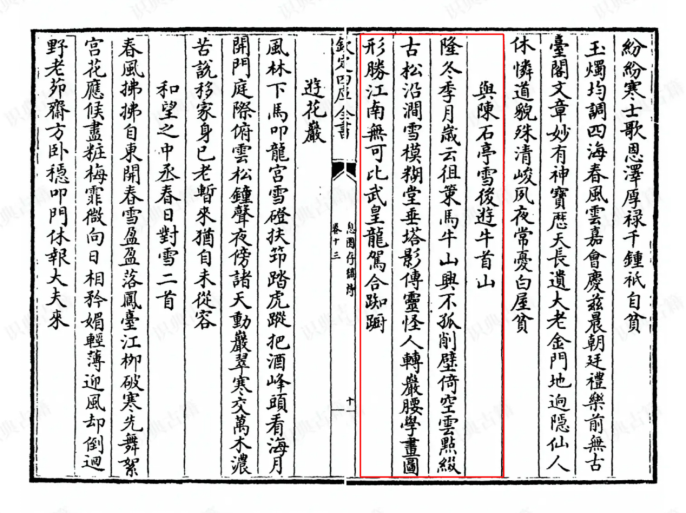 紛紛寒士歌恩澤厚禄千鍾衹自貧
玉燭均調四海春風雲嘉會慶兹晨朝廷禮樂前無古
臺閣文章妙有神寶歴天長遺大老金門地迥隱仙人
休憐道貌殊清峻夙夜常憂白屋貧
與陳石亭雪後遊牛首山
隆冬季月歳云徂葉馬牛山興不孤削壁倚空雲點綴
古松沿澗雪模糊堂垂塔影傳靈怪人轉巖腰學畫圖
形勝江南無可比武皇龍駕合踟蹰
欽定四庫全書
息園存稿詩
卷十三
十一
遊花巖
風林下馬叩龍宫雪磴扶笻踏虎蹤把酒峰頭看海月
開門庭際俯雲松鐘聲夜傍諸天動巖翠寒交萬木濃
苦說移家身已老暫來猶自未從容
和望之中丞春日對雪二首
春風拂拂自東開春雪盈盈落鳳臺江柳破寒先舞絮
宫花應候盡粧梅霏微向日相矜媚輕薄迎風却倒迴
野老茆齋方卧穩叩門休報大夫來